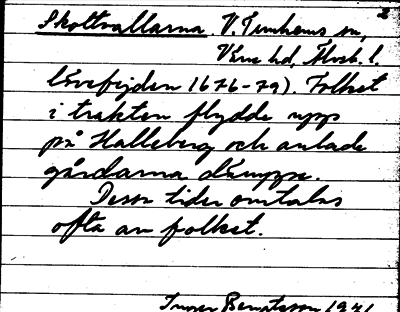 2
Skottvallarna. V. Tunhems sn,
Väne hd, Älvsb. l.
lövefejden 1676-79). Folket
i trakten flydde upp
på Halleberg och anlade
gårdarna däruppe.
Dessa tider omtalas
ofta av folket.
Bengtsson 1921